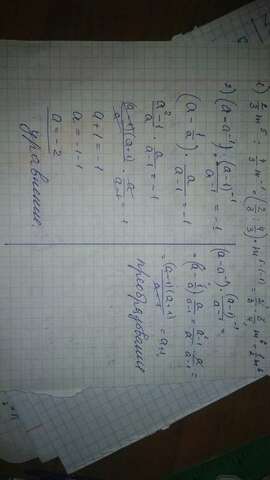 1) 2/3 m⁵ : 4/3 m⁻¹ = (2/3 : 4/3) · m⁵⁻⁽⁻¹⁾ = 2/3 · 3/4 m⁶ = 1/2 m⁶
2) (a - a⁻¹) · (a-1)⁻¹/a⁻¹ = -1
(a - 1/a) · a/a-1 = -1
a²-1/a · a/a-1 = -1
(a-1)(a+1)/a · a/a-1 = -1
a+1 = -1
a = -1-1
a = -2
уравнение
(a-a⁻¹) · (a-1)⁻¹/a⁻¹ =
= (a - 1/a) · a/a-1 = a²-1/a · a/a-1 =
= (a-1)(a+1)/a-1 = a+1
преобразование